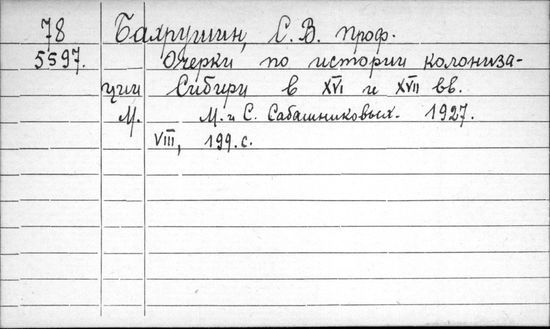 78 Бахрушин, С. В. проф.
5597. Очерки по истории колониза-
ции Сибири в XVI и XVII вв.
М. М. и С. Сабашниковых. 1927.
VIII, 199. с.